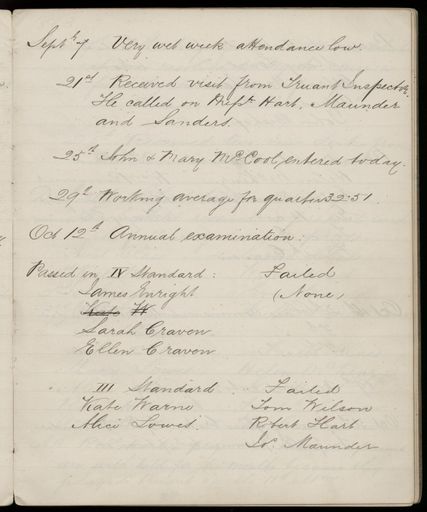 Septr 7 Very wet week attendance low.
21st Received visit from Truant Inspector.
He called on Hart, Maunder
and Sanders.
25th John & Mary McCool entered today.
29th Working average for quarter 32.51
Oct 12th Annual examination:
Passed in IV Standard: Failed
James Enright (None)
Kate W
Sarah Craven
Ellen Craven
III Standard Failed
Kate Warne Tom Wilson
Alice Lowes Robert Hart
Jos. Maunder